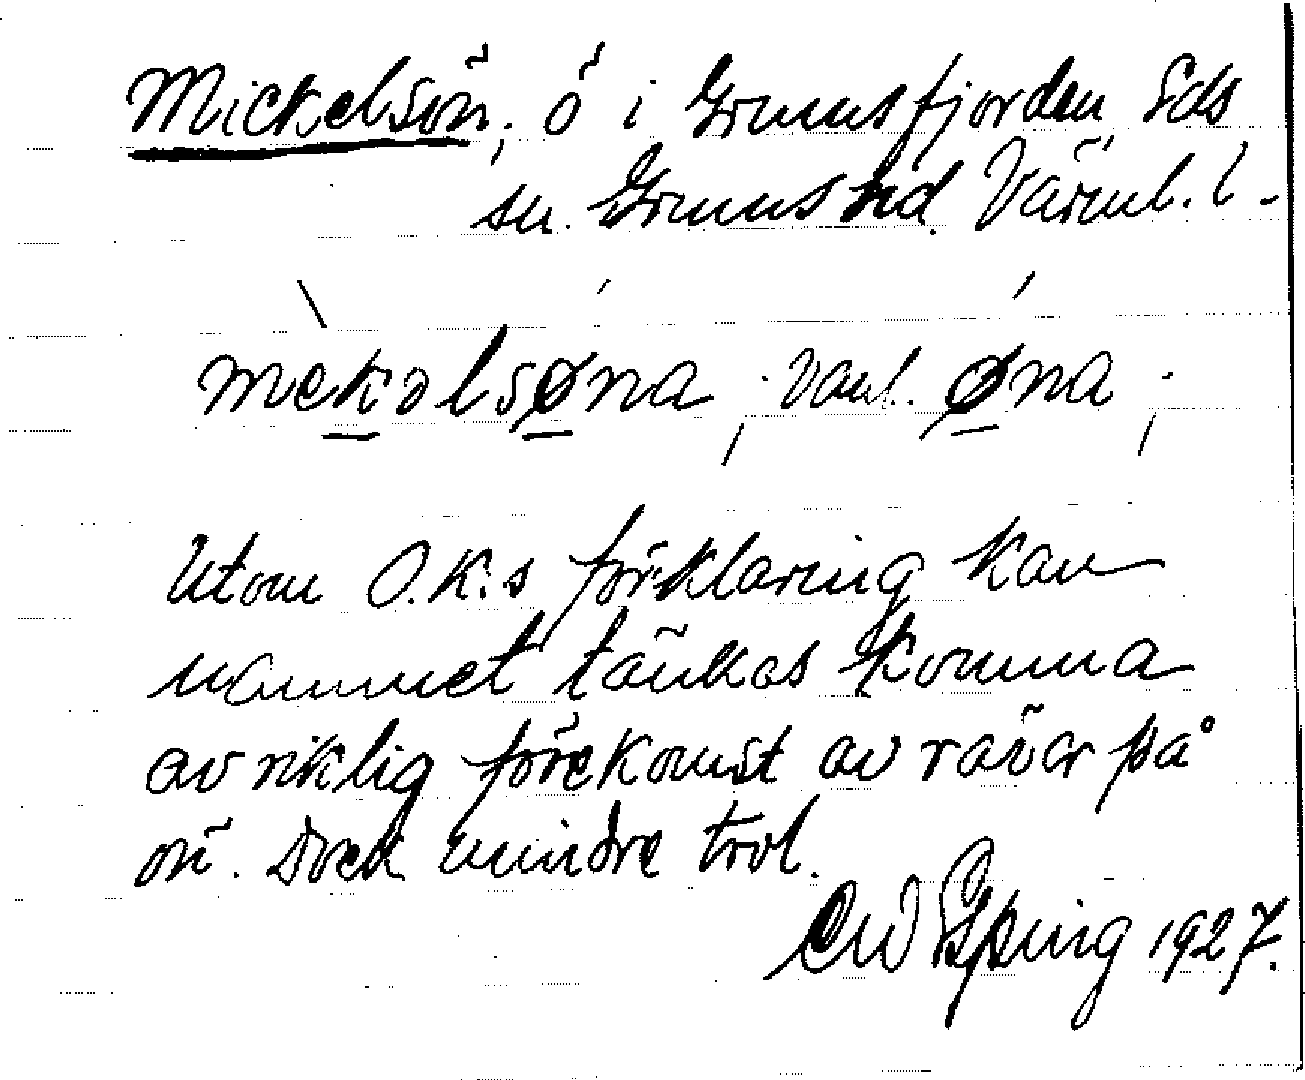 Mickelsön, ö i Grumsfjorden, Eds
sn. Grums hd. Värml. l.
mekəlsøna, vanl. øna,
Utom O.K:s förklaring kan
namnet tänkas komma
av riklig förekomst av rävar på
ön. Dock mindre trol.
1927.